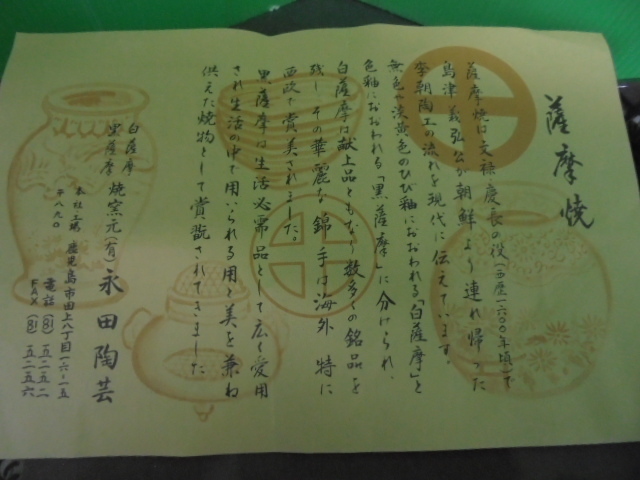 薩摩焼
薩摩焼は文禄慶長の役(西歴一六〇〇年頃)で
島津義弘公が朝鮮より連れ帰った
李朝陶工の流れを現代に伝えています。
無色や淡黄色のひび釉におおわれる「白薩摩」と
色釉におおわれる「黒薩摩」に分けられ、
白薩摩は献上品ともなり数多くの銘品を
残し、その華麗な錦手は海外 特に
西欧で賞美されました。
黒薩摩は生活必需品として広く愛用
され生活の中で用いられる用と美を兼ね
供えた焼物として賞翫されてきました
白薩摩
黒薩摩 焼窯元 (有)永田陶芸
本社工場 鹿児島市田上八丁目一六-一五
〒八九〇 電話 (81) 五二五二
FAX (81) 五二五六